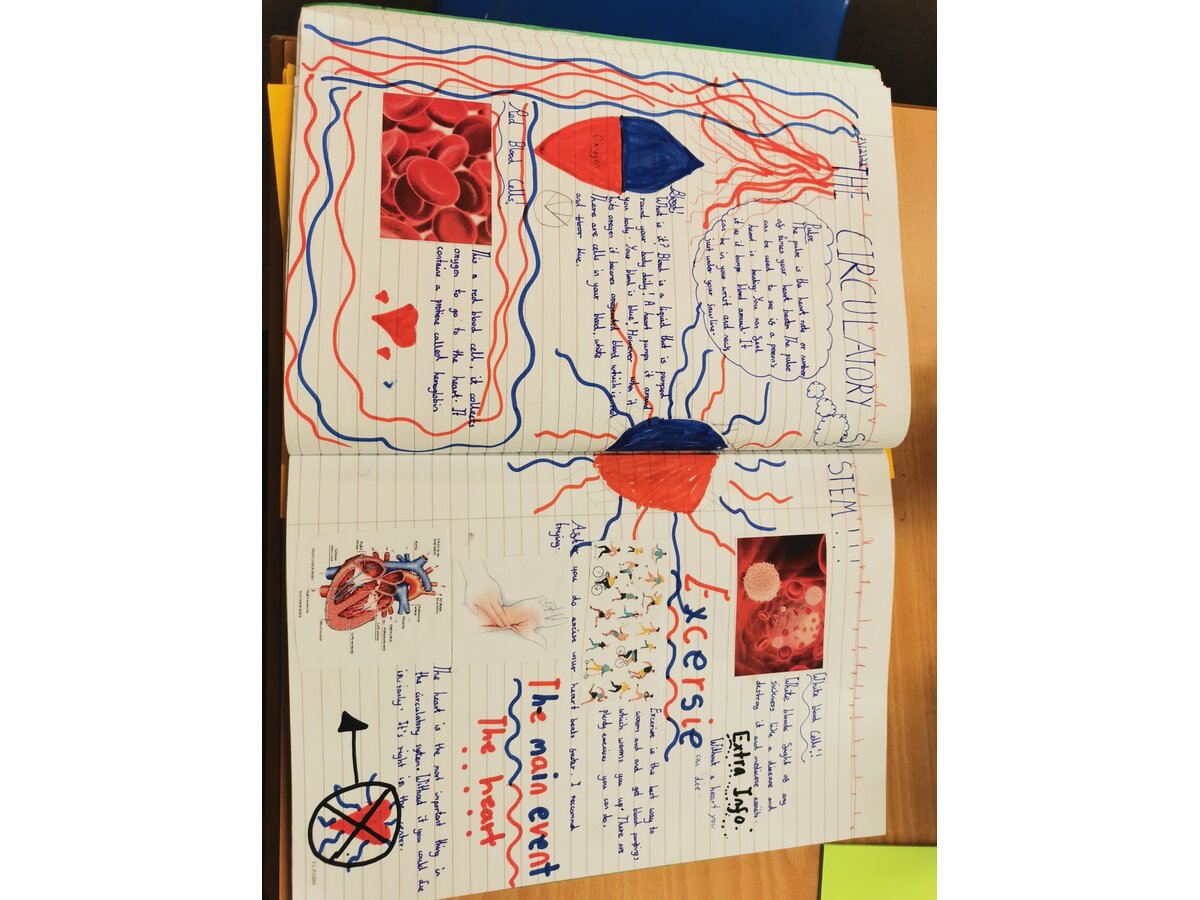 21/2/23
THE CIRCULATORY SYSTEM !!!
Pulse
The pulse is the heart rate or number
of times your heart beats. The pulse
can be used to see is a person's
heart is beating. You can feel
it as it bumps blood around. It
can be in your wrist and neck,
just under your jaw line.
Blood!
What is it? Blood is a liquid that is pumped
round your body daily! A heart pumps it around
you body. Your blood is blue! However when it
hits oxegen it becomes blood which is red
There are cells in your blood, white
and blue.
Oxygen
Red Blood Cells!
This a red blood cell, it collects
oxygen to go to the heart. It
contains a protiene called hemoglobin
White blood Cells!!
White bloods fight of any
sickness like a disease and
destroy it and medicene assists.
Extra Info:
Without a heart you
can die.
Excersie
Excersie is the best way to
warm and and get blood pumpings
which warms you up! There are
plenty exercises you can do.
As the you do excise your heart beats faster. I recomend
trying.
The main event
The heart
The heart is the most important thing in
the circulatory system. Without it you could die
instantly! It's right in the center.